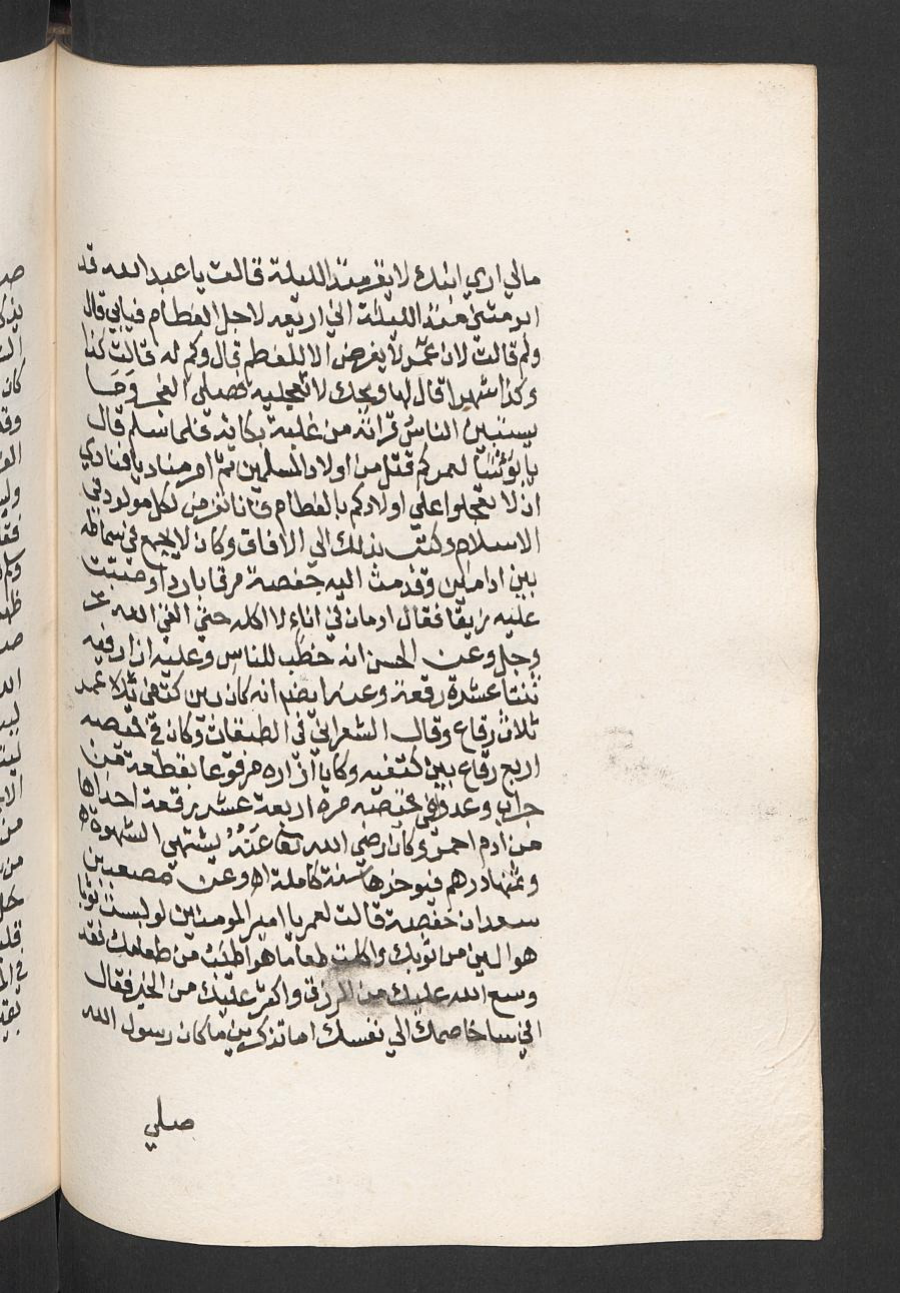 مالي اري ابنك لا يقر منذ الليلة قالت يا عبد الله قد
ابرمتني منذ الليلة اني اريعه لاجل الفطام فيابي قال
ولم قالت لان عمر لا يفرض الا للفطم قال وكم له قالت كذا
وكذا شهرا قال لها ويحك لا تعجليه فصلي الفجر وما
يستبين الناس قراته من غلبة بكائه فلما سلم قال
يا بوسا لعمر كم قتل من اولاد المسلمين ثم امر مناديا فنادي
ان لا تعجلوا على اولادكم بالفطام فانا نفرض لكل مولود في
الاسلام وكتب بذلك الي الافاق وكان لا يجمع في سماطه
بين ادامين وقدمت اليه حفصة مرقا باردا وصبت
عليه زيتا فقال ادمان في اناء لا اكله حتي القي الله عز
وجل وعن الحسن انه خطب للناس وعليه ازار فيه
ثنتا عشرة رقعة وعنه ايضا انه كان بين كتفي عمر
ثلاث رقاع وقال الشعراني في الطبقات وكان في قميصه
اربع رقاع بين كتفيه وكان ازاره مرفوعا بقطعة من
جراب وعدوا في قميصه مرة اربعة عشر رقعة احداها
من ادم احمر وكان رضي الله تعا عنه يشتهي الشهوة
وثمنها درهم فيوخرها سنة كاملة اه وعن مصعب بن
سعد ان حفصة قالت لعمر يا امير المومنين لو لبست ثوبا
هو الين من ثوبك واكلت طعاما هو اطيب من طعامك فقد
وسع الله عليك من الرزق واكثر عليك من الخير فقال
اني ساخاصمك الي نفسك اما تذكرين ما كان رسول الله
صلي